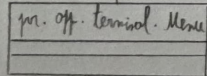 pr. off. terminal. Menu